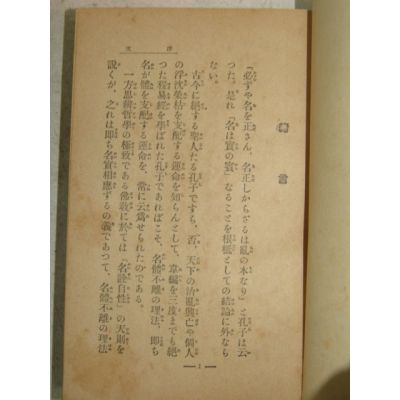 緒言
「必ずや名を正さん、名正しからざるは亂の本なり」と孔子は云
つた。是れ「名は實の賓」なることを根柢としての結論に外なら
ない。
古今に絕する聖人たる孔子ですら、否、天下の治亂興亡や個人
の浮沈榮枯を支配する運命を知らんとして、韋編を三度までも絕
つた程易經を學ばれた孔子であればこそ、名體不離の理法、即ち
名が體を支配する運命を、常に云爲せられたのである。
一方思辨哲學の極致である佛敎に於ては「名詮自性」の天則を
說くが、之れは即ち名實相應するの義であつて、名體不離の理法
1